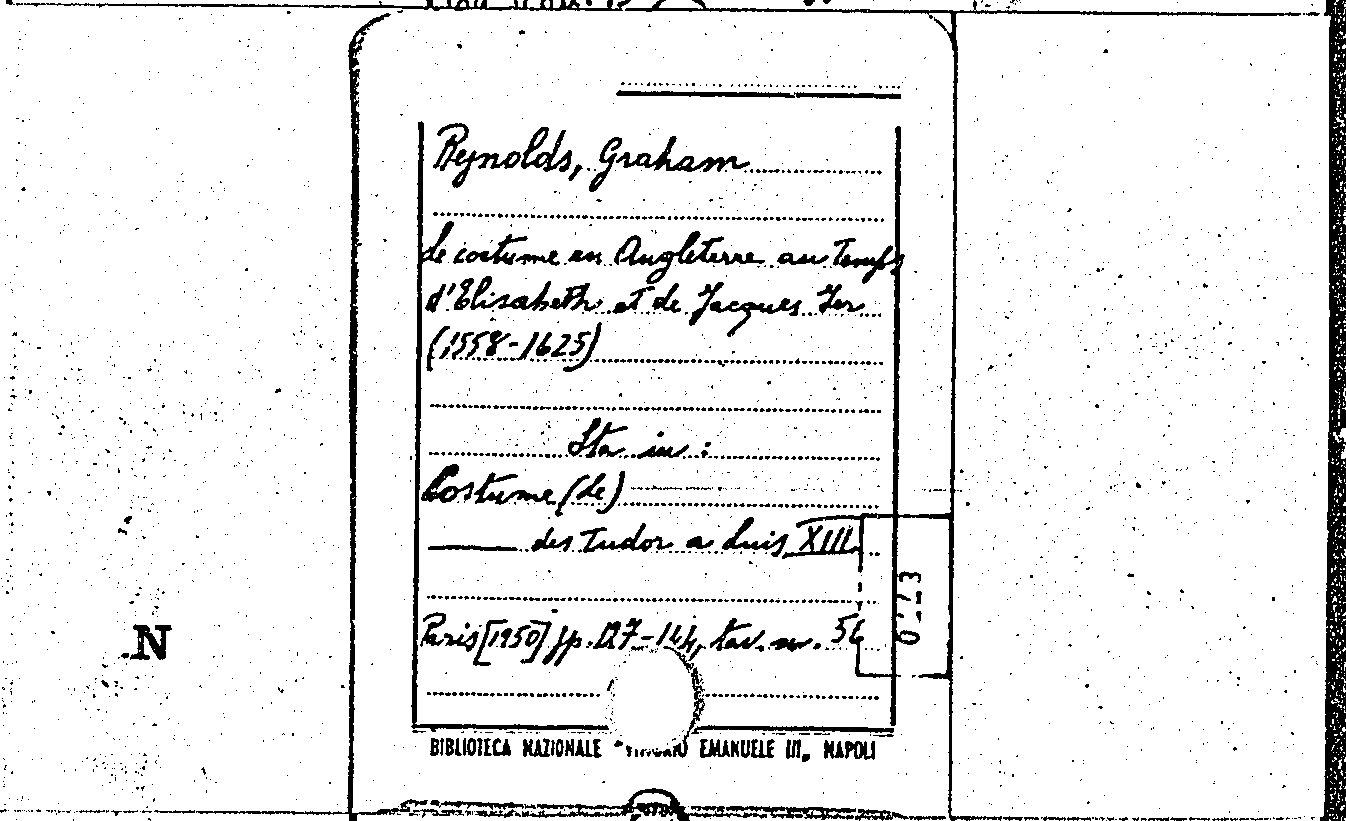 Reynolds, Graham
Le costume en Angleterre au temps
d'Elisabeth et de Jacques Ier
(1558-1625)
Sta in:
Costume (de)
des Tudor a Luis XIII
Paris [1950] pp. 127-144, tav. n. 56
0223
N
BIBLIOTECA NAZIONALE "VITTORIO EMANUELE III, NAPOLI